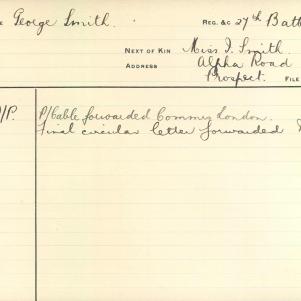 George Smith. REG. &C 27th Batt
NEXT OF KIN Miss J. Smith.
ADDRESS Alpha Road
Prospect. FILE
P/Cable forwarded Commrs London.
Final circular letter forwarded